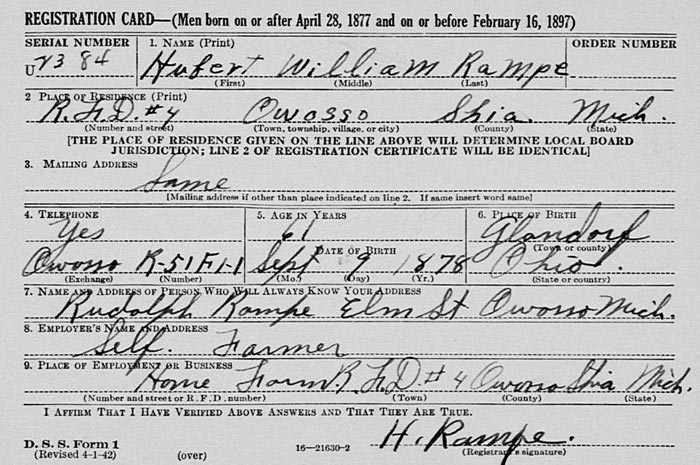 REGISTRATION CARD—(Men born on or after April 28, 1877 and on or before February 16, 1897)
SERIAL NUMBER 1. NAME (Print) ORDER NUMBER
U 2384 Hubert William Rampe
(First) (Middle) (Last)
2 PLACE OF RESIDENCE (Print)
R.F.D. #4 Owosso Shia. Mich.
(Number and street) (Town, township, village, or city) (County) (State)
[THE PLACE OF RESIDENCE GIVEN ON THE LINE ABOVE WILL DETERMINE LOCAL BOARD
JURISDICTION; LINE 2 OF REGISTRATION CERTIFICATE WILL BE IDENTICAL]
3. MAILING ADDRESS
Same
[Mailing address if other than place indicated on line 2. If same insert word same]
4. TELEPHONE 5. AGE IN YEARS 6. PLACE OF BIRTH
Yes 61 Glandorf
DATE OF BIRTH (Town or county)
Owosso R-51F1-1 Sept 9 1878 Ohio.
(Exchange) (Number) (Mo.) (Day) (Yr.) (State or country)
7. NAME AND ADDRESS OF PERSON WHO WILL ALWAYS KNOW YOUR ADDRESS
Rudolph Rampe Elm St Owosso Mich.
8. EMPLOYER'S NAME AND ADDRESS
Self. Farmer
9. PLACE OF EMPLOYMENT OR BUSINESS
Home Farm R.F.D. #4 Owosso Shia Mich.
(Number and street or R. F. D. number) (Town) (County) (State)
I AFFIRM THAT I HAVE VERIFIED ABOVE ANSWERS AND THAT THEY ARE TRUE.
H. Rampe.
D. S. S. Form 1
(Revised 4-1-42) (over) 16—21630-2 (Registrant's signature)